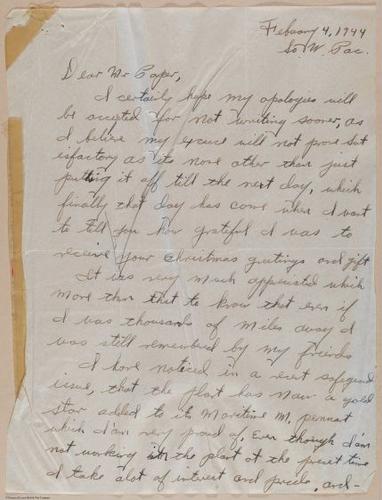 February 4, 1944
So. W. Pac.
Dear Mr Paper,
I certainly hope my apologies will
be accepted for not writing sooner, as
I believe my excuse will not prove sat
isfactory as its none other than just
putting it off till the next day, which
finally that day has come when I want
to tell you how grateful I was to
receive your Christmas greetings and gift
It was very much appreciated which
more than that to know that even if
I was thousands of miles away I
was still remembered by my friends
I have noticed in a recent safeguard
issue, that the plant has now a gold
star added to its Maritime M. pennat
which I am very proud of. Even though I am
not working in the plant at the present time
I take alot of interest and pride, and -